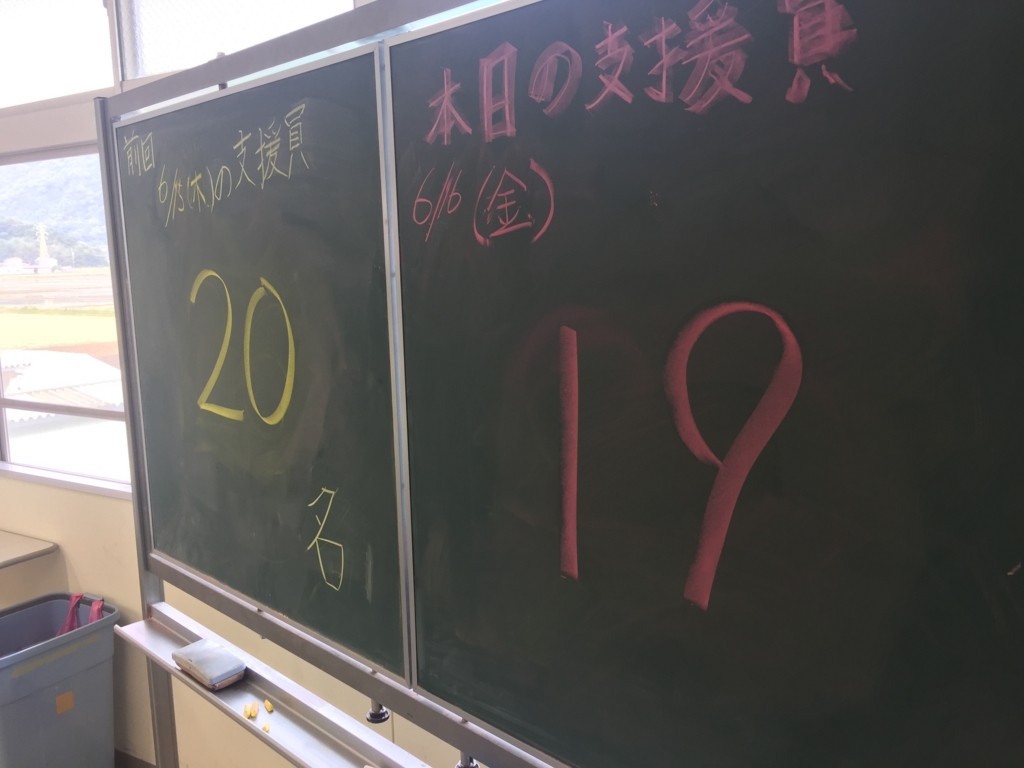 前回
6/15(木)の支援員
20
名
本日の支援員
6/16(金)
19